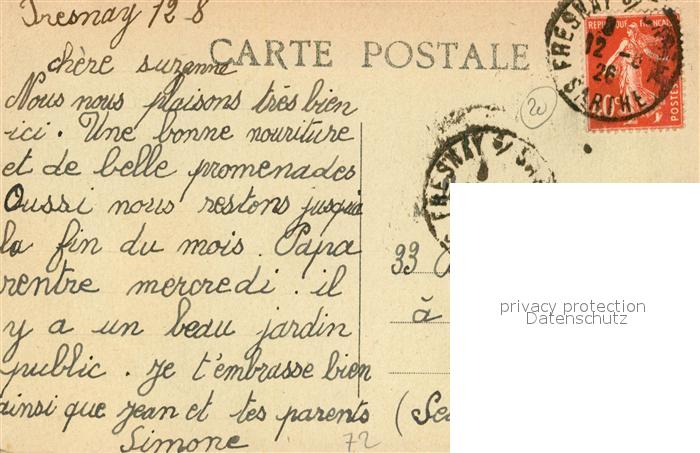 Fresnay 12 8
CARTE POSTALE
chère suzanne
Nous nous plaisons très bien
ici. Une bonne nouriture
et de belle promenades
Oussi nous restons jusqua
la fin du mois. Papa
rentre mercredi. il
y a un beau jardin
public. je t'embrasse bien
ainsi que jean et tes parents
Simone
72
20
FRESNAY S/
12 -8
26
SARTHE
REPUBLIQUE FRANÇAISE
POSTES
FRESNAY S/ SA
33
à
(Se
privacy protection
Datenschutz